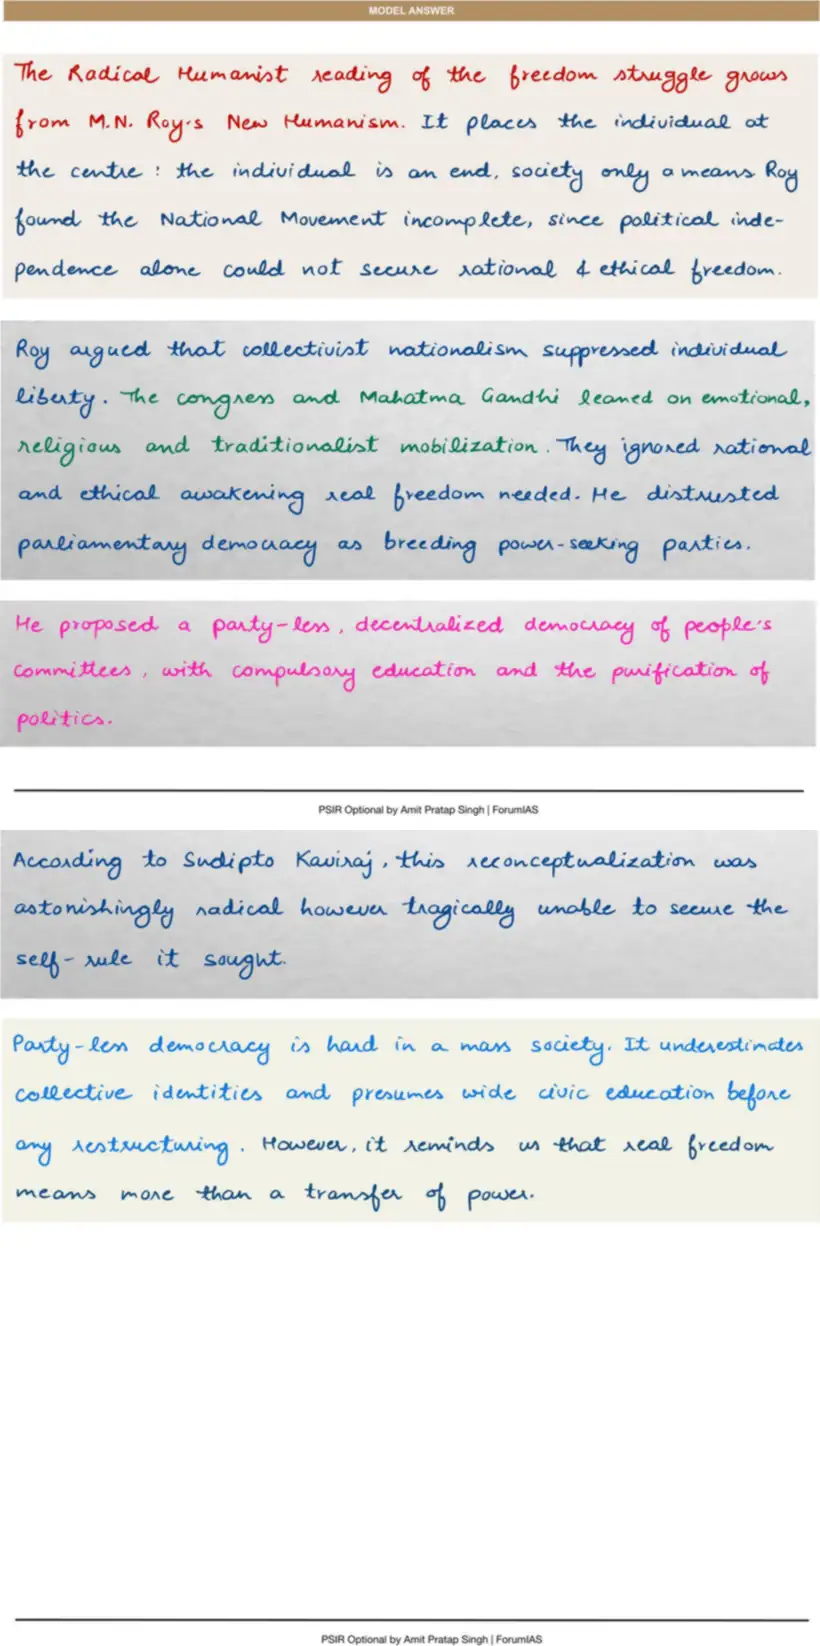 MODEL ANSWER
The Radical Humanist reading of the freedom struggle grows
from M.N. Roy's New Humanism. It places the individual at
the centre : the individual is an end, society only a means Roy
found the National Movement incomplete, since political inde-
pendence alone could not secure rational & ethical freedom.
Roy argued that collectivist nationalism suppressed individual
liberty. The congress and Mahatma Gandhi leaned on emotional,
religious and traditionalist mobilization. They ignored rational
and ethical awakening real freedom needed. He distrusted
parliamentary democracy as breeding power-seeking parties.
He proposed a party-less, decentralized democracy of people's
committees, with compulsory education and the purification of
politics.
PSIR Optional by Amit Pratap Singh | ForumIAS
According to Sudipto Kaviraj, this reconceptualization was
astonishingly radical however tragically unable to secure the
self-rule it sought.
Party-less democracy is hard in a mass society. It underestimates
collective identities and presumes wide civic education before
any restructuring. However, it reminds us that real freedom
means more than a transfer of power.
PSIR Optional by Amit Pratap Singh | ForumIAS